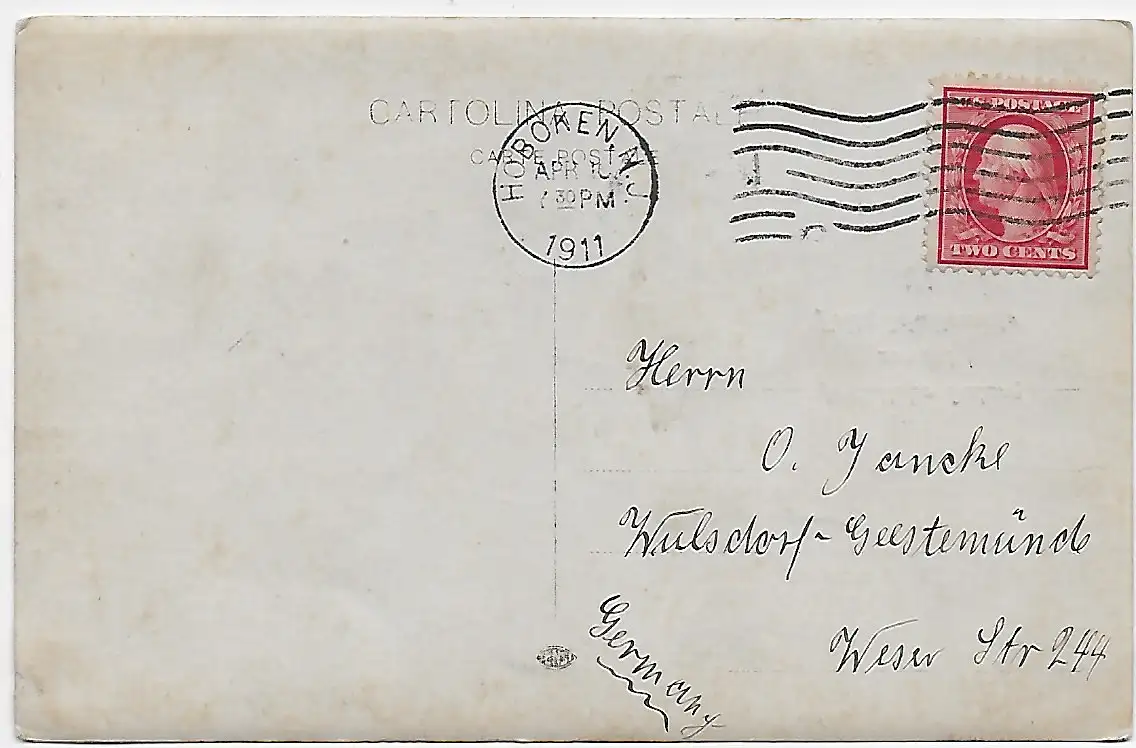 CARTOLINA POSTALE
CARTE POSTALE
HOBOKEN, N.J.
APR 10
30 PM
1911
U.S. POSTAGE
TWO CENTS
Herrn
O. Jancke
Wulsdorf-Geestemünde
Weser Str 244
Germany